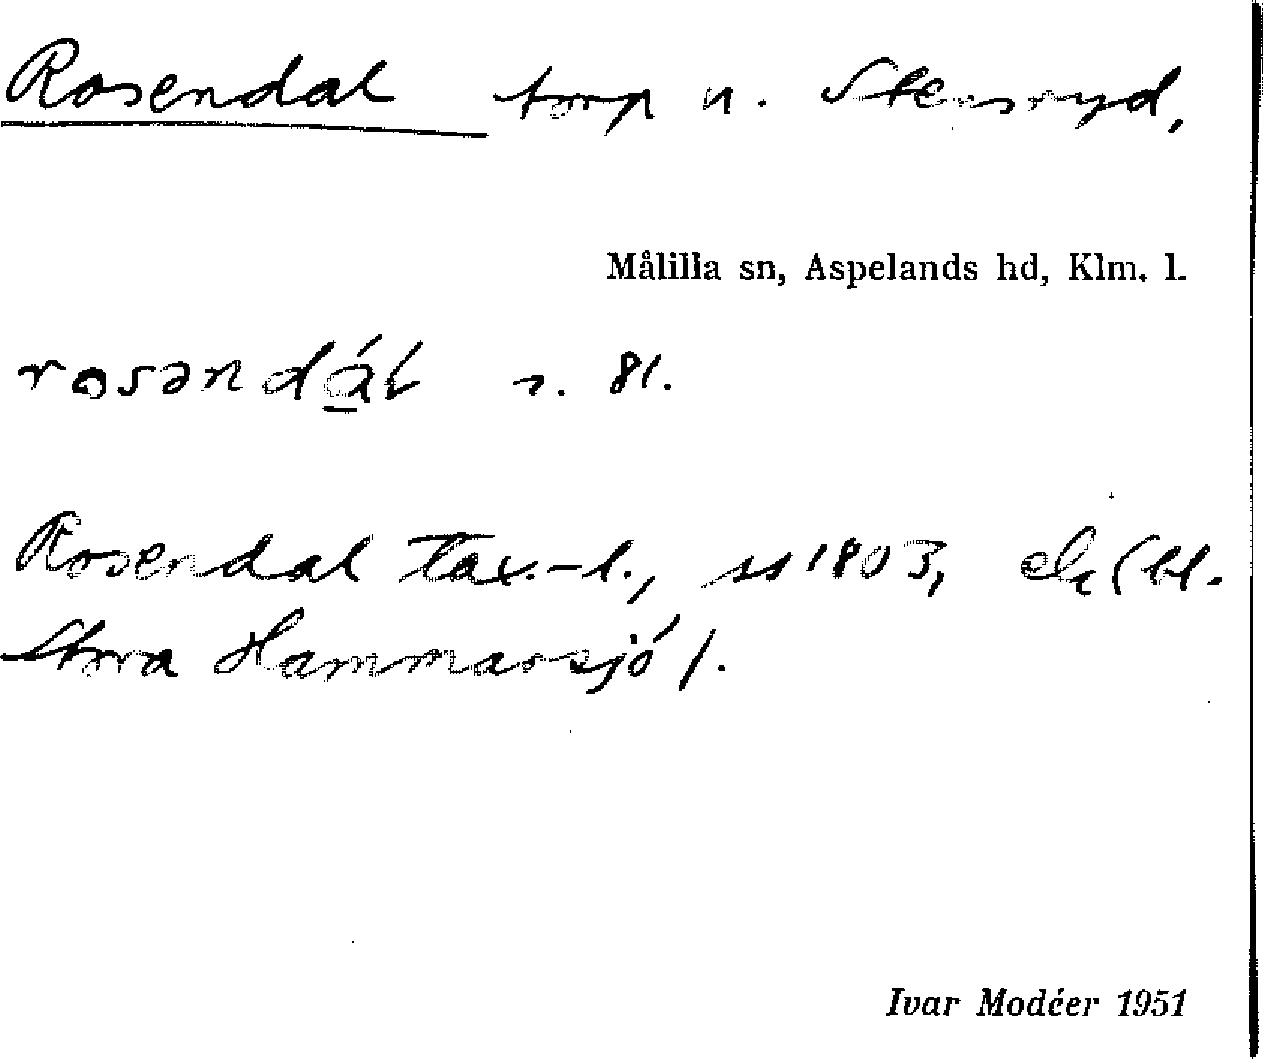 Rosendal torp u. Stensryd,
Målilla sn, Aspelands hd, Klm. l.
rosəndál s. 81.
Rosendal tax.-l., ss 1803, ek (bl.
Stora Hammarsjö).
Ivar Modéer 1951